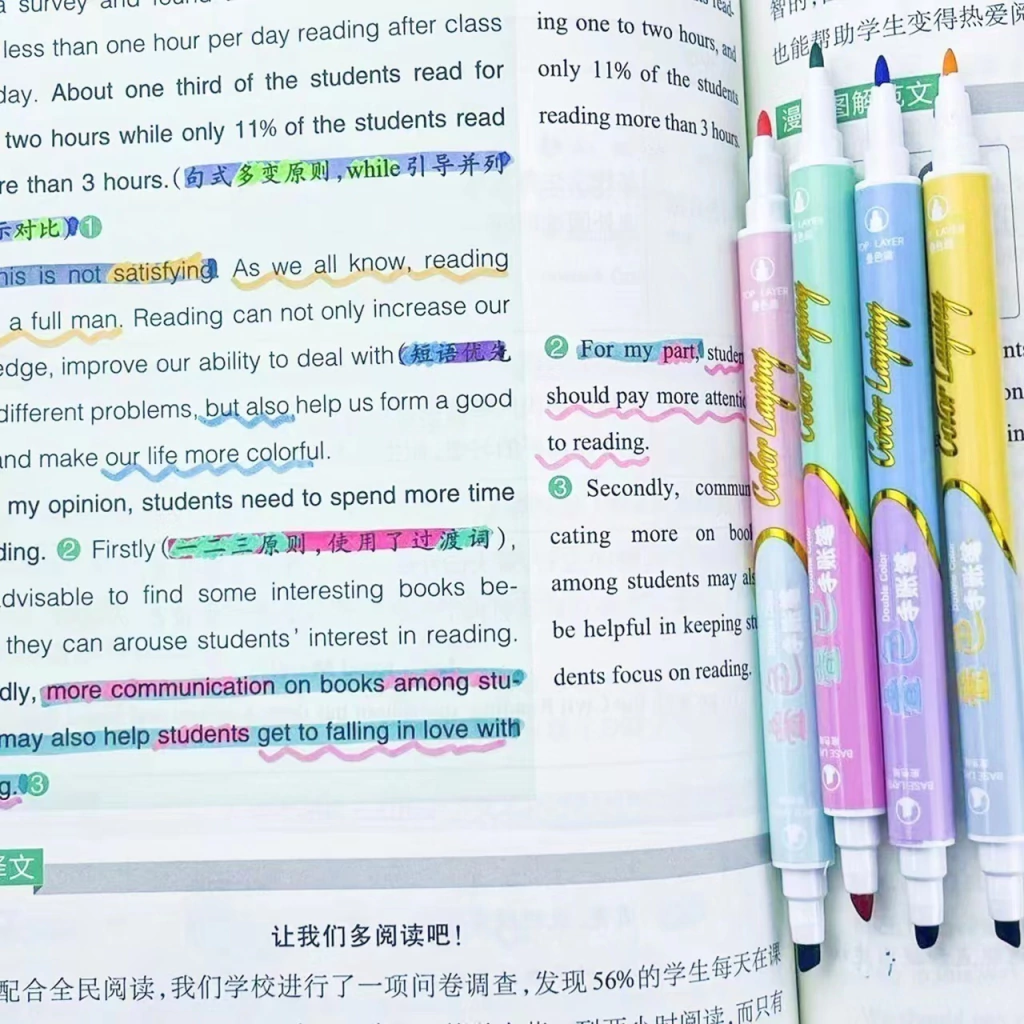 a survey and found
less than one hour per day reading after class
day. About one third of the students read for
two hours while only 11% of the students read
re than 3 hours.(句式多变原则,while引导并列
示对比)①
his is not satisfying. As we all know, reading
a full man. Reading can not only increase our
edge, improve our ability to deal with(短语优先
different problems, but also help us form a good
and make our life more colorful.
my opinion, students need to spend more time
ding. ② Firstly(一二三原则,使用了过渡词),
advisable to find some interesting books be-
they can arouse students' interest in reading.
dly, more communication on books among stu-
may also help students get to falling in love with
g.③
ing one to two hours, and
only 11% of the students
reading more than 3 hours.
② For my part, studen
should pay more attentio
to reading.
③ Secondly, commun
cating more on book
among students may als
be helpful in keeping stu
dents focus on reading.
译文
让我们多阅读吧!
配合全民阅读,我们学校进行了一项问卷调查,发现56%的学生每天在课
到两小时阅读,而只有
也能帮助学生变得热爱阅
漫 图解范文
TOP LAYER
叠色端
Color Laying
Double Color
叠色手账笔
BASE LAYER
底色端
TOP LAYER
叠色端
Color Laying
Double Color
叠色手账笔
BASE LAYER
底色端
Color Laying
叠色手账笔
Color Laying